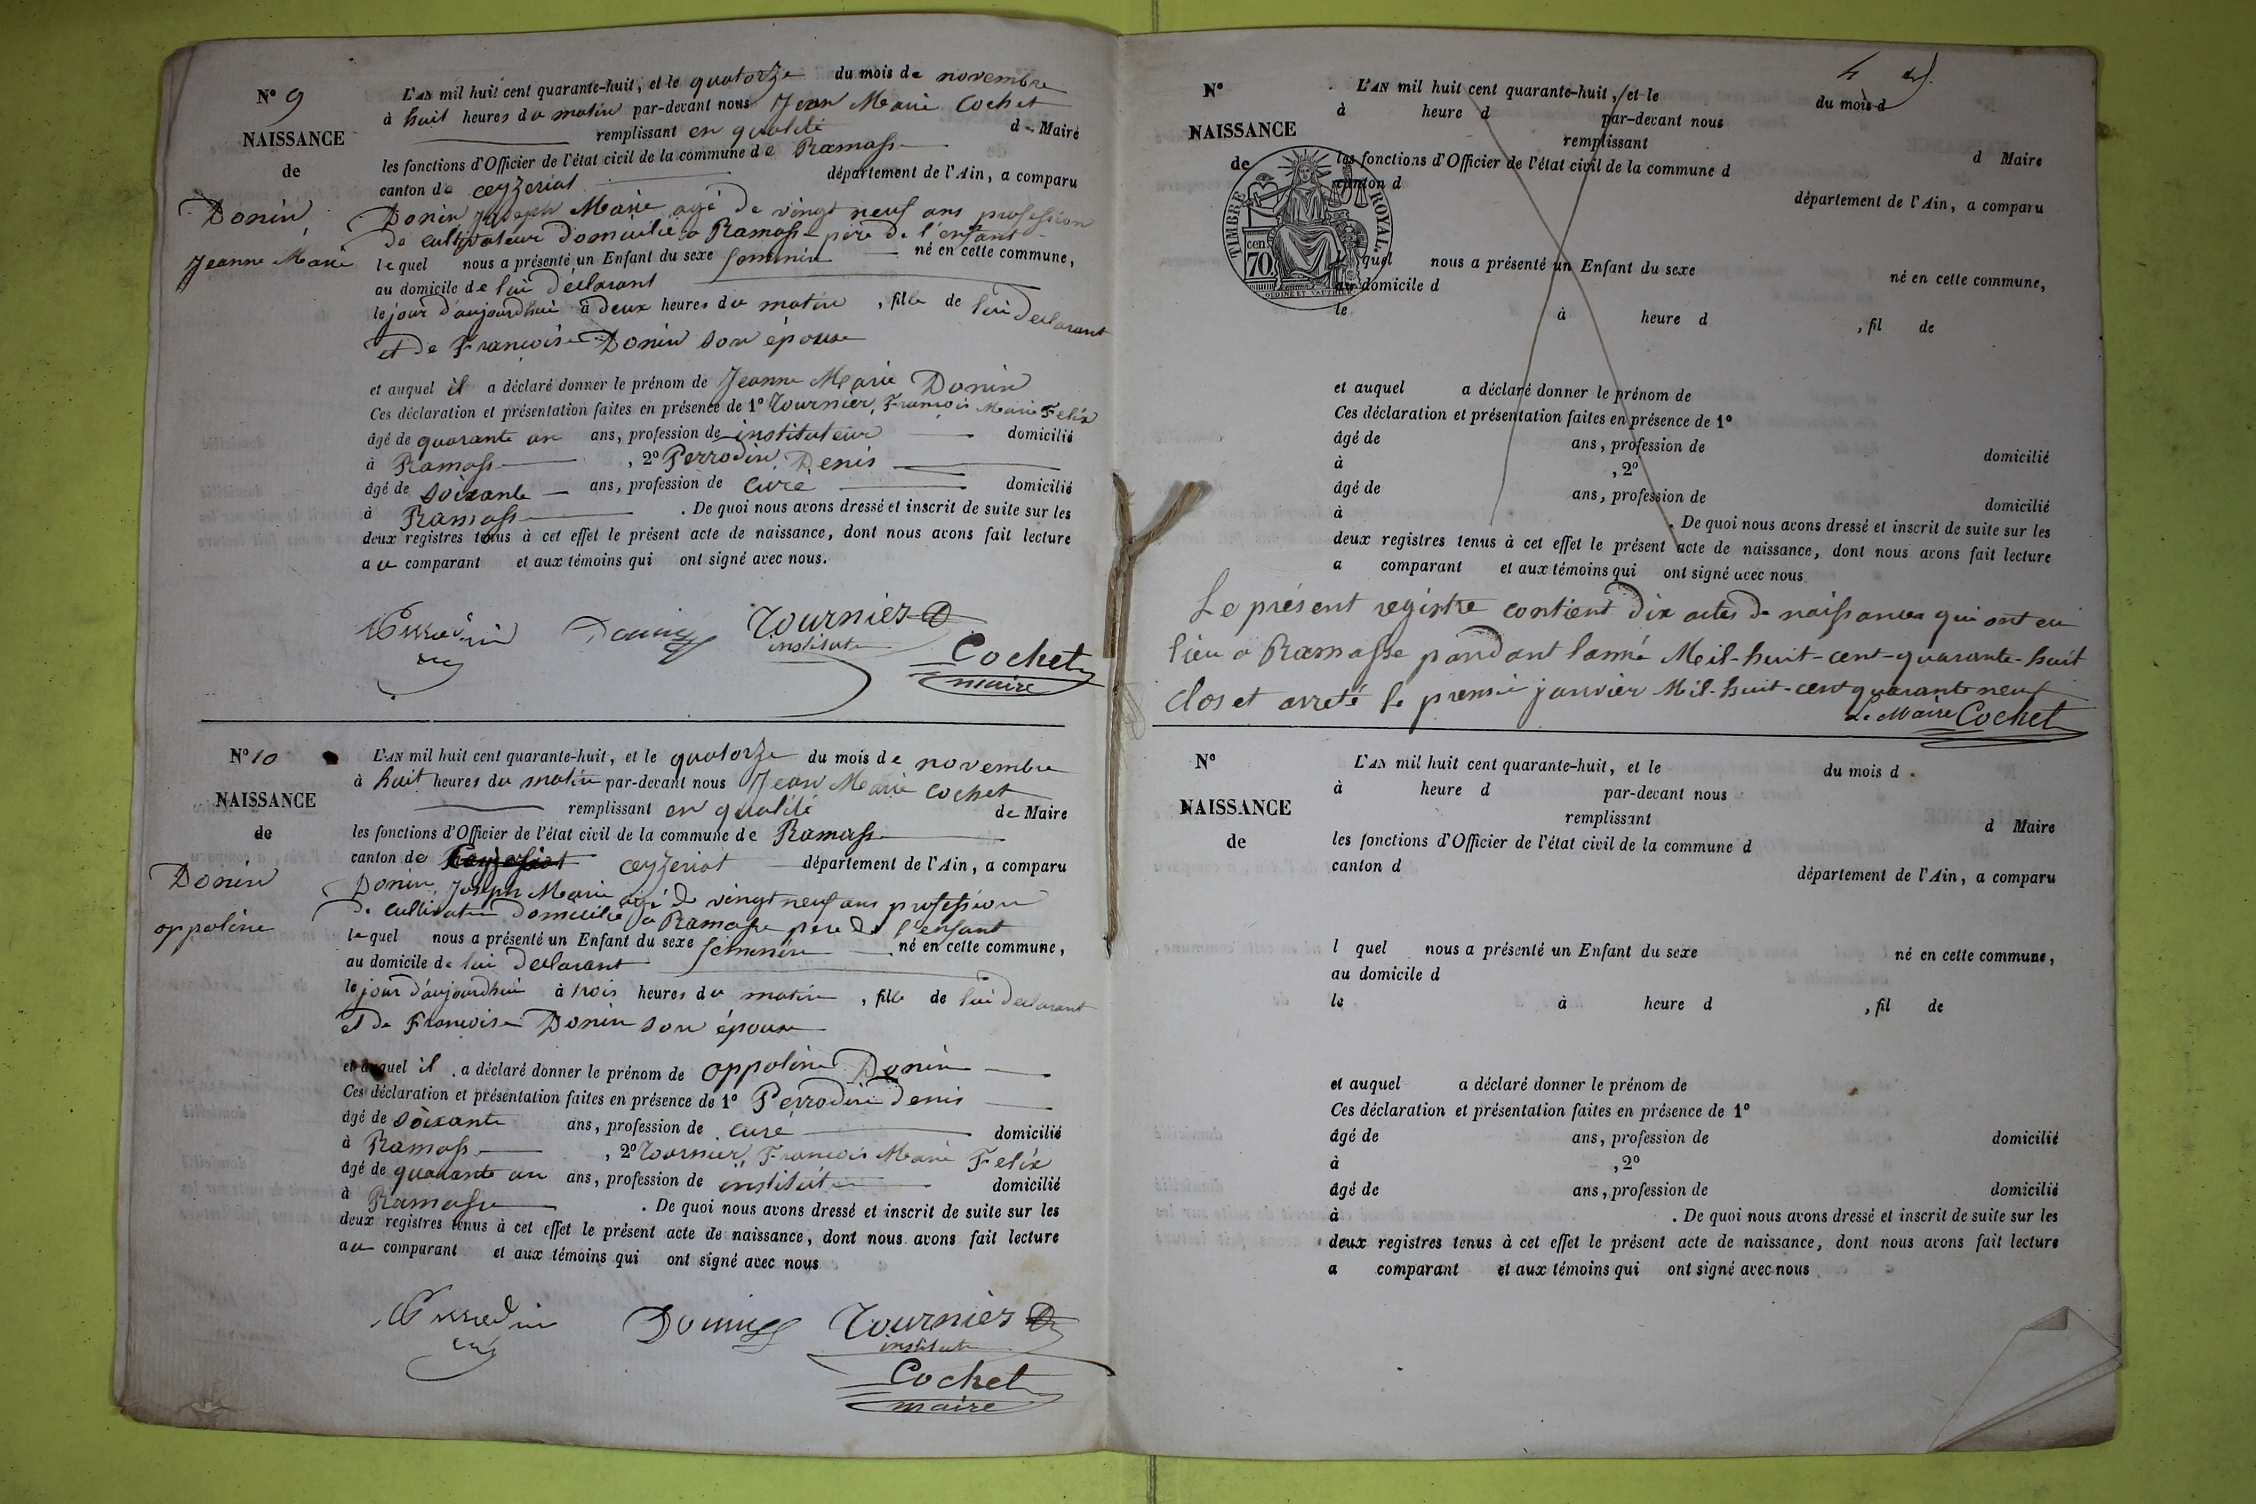 N° 9
NAISSANCE
de
Donin
Jeanne Marie
L'AN mil huit cent quarante-huit, et le quatorze du mois de novembre
à huit heures du matin par-devant nous Jean Marie Cochet
remplissant en qualité de Maire
les fonctions d'Officier de l'état civil de la commune de Ramasse
canton de ceyzeriat département de l'Ain, a comparu
Donin Joseph Marie agé de vingt neuf ans profession
de cultivateur domicilié a Ramasse père de l'enfant
lequel nous a présenté un Enfant du sexe feminin né en cette commune,
au domicile de lui déclarant
le jour d'aujourdhui à deux heures du matin, fille de lui declarant
et de Francoise Donin son épouse
et auquel il a déclaré donner le prénom de Jeanne Marie Donin
Ces déclaration et présentation faites en présence de 1° Tournier, François Marie Felix
âgé de quarante un ans, profession de instituteur domicilié
à Ramasse, 2° Perrodin, Denis
âgé de soixante ans, profession de curé domicilié
à Ramasse. De quoi nous avons dressé et inscrit de suite sur les
deux registres tenus à cet effet le présent acte de naissance, dont nous avons fait lecture
au comparant et aux témoins qui ont signé avec nous.
Perrodin Donin Tournier
institut
Cochet
maire
N° 10
NAISSANCE
de
Donin
oppoline
L'AN mil huit cent quarante-huit, et le quatorze du mois de novembre
à huit heures du matin par-devant nous Jean Marie Cochet
remplissant en qualité de Maire
les fonctions d'Officier de l'état civil de la commune de Ramasse
canton de ceyzeriat département de l'Ain, a comparu
Donin, Joseph Marie agé de vingt neuf ans profession
de cultivateur domicilié a Ramasse père de l'enfant
lequel nous a présenté un Enfant du sexe feminin né en cette commune,
au domicile de lui declarant
le jour d'aujourdhui à trois heures du matin, fille de lui declarant
et de Francoise Donin son épouse
et auquel il a déclaré donner le prénom de oppoline Donin
Ces déclaration et présentation faites en présence de 1° Perrodin Denis
âgé de soixante ans, profession de curé domicilié
à Ramasse, 2° Tournier, François Marie Felix
âgé de quarante un ans, profession de institut domicilié
à Ramasse. De quoi nous avons dressé et inscrit de suite sur les
deux registres tenus à cet effet le présent acte de naissance, dont nous avons fait lecture
au comparant et aux témoins qui ont signé avec nous
Perrodin Donin Tournier
curé institut
Cochet
maire
4
N°
NAISSANCE
de
TIMBRE ROYAL.
cen.
70
L'AN mil huit cent quarante-huit, et le du mois d
à heure d par-devant nous
remplissant d Maire
les fonctions d'Officier de l'état civil de la commune d
canton d département de l'Ain, a comparu
quel nous a présenté un Enfant du sexe né en cette commune,
au domicile d
le à heure d , fil de
et auquel a déclaré donner le prénom de
Ces déclaration et présentation faites en présence de 1°
âgé de ans, profession de domicilié
à , 2°
âgé de ans, profession de domicilié
à . De quoi nous avons dressé et inscrit de suite sur les
deux registres tenus à cet effet le présent acte de naissance, dont nous avons fait lecture
a comparant et aux témoins qui ont signé avec nous
Le présent registre contient dix actes de naissances qui ont eu
lieu a Ramasse pandant lanné Mil-huit-cent-quarante-huit
Clos et arreté le premie janvier Mil-huit-cent quarante neuf
Le Maire Cochet
N°
NAISSANCE
de
L'AN mil huit cent quarante-huit, et le du mois d
à heure d par-devant nous
remplissant d Maire
les fonctions d'Officier de l'état civil de la commune d
canton d département de l'Ain, a comparu
l quel nous a présenté un Enfant du sexe né en cette commune,
au domicile d
le à heure d , fil de
et auquel a déclaré donner le prénom de
Ces déclaration et présentation faites en présence de 1°
âgé de ans, profession de domicilié
à , 2°
âgé de ans, profession de domicilié
à . De quoi nous avons dressé et inscrit de suite sur les
deux registres tenus à cet effet le présent acte de naissance, dont nous avons fait lecture
a comparant et aux témoins qui ont signé avec nous